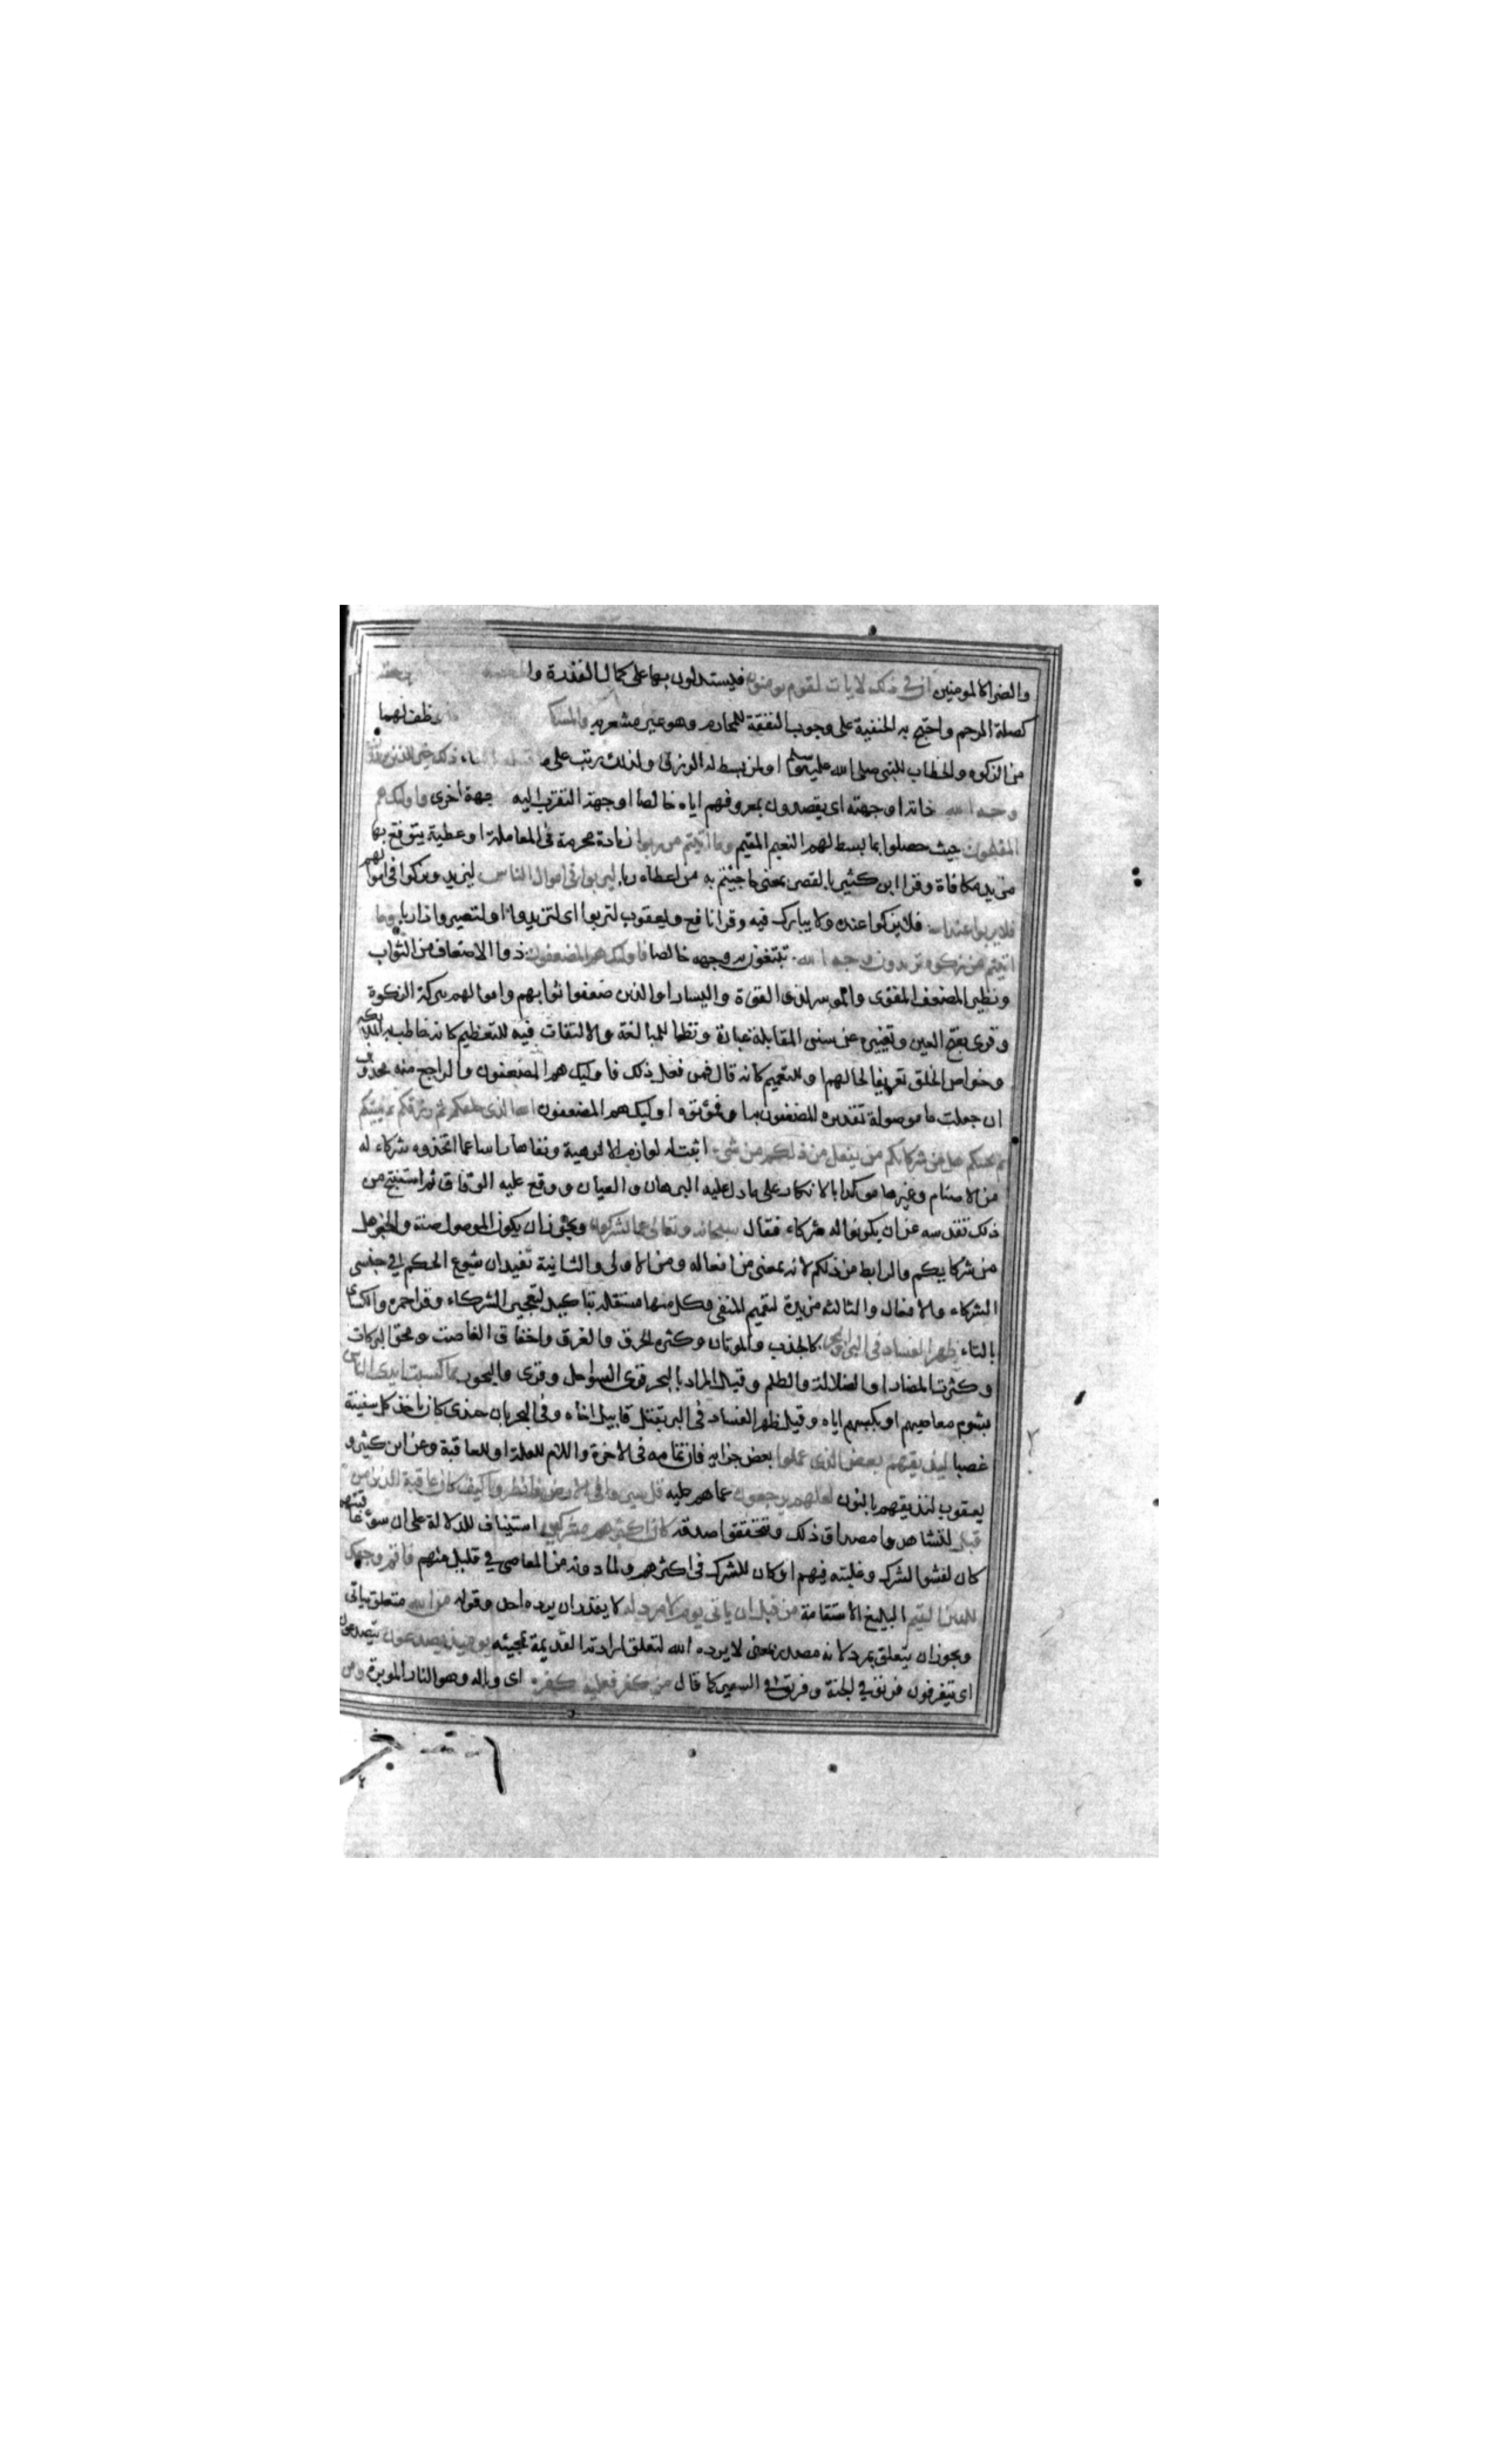 والضرا كالمومنين ان في ذلك لايات لقوم يومنون فيستدلون بها على كمال القدرة وا
كصلة الرحم واحتج به الحنفية على وجوب النفقة للمحارم وهو غير مشعر به والمسكـ وظف لهما
من الزكوه والخطاب للنبي صلى الله عليه وسلم او لمن بسط له الرزق ولذلك رتب على ما قبله ذلك خير للذين يريدون
وجه الله ذاته او جهته اى يقصدون بمعروفهم اياه خالصا او جهة التقرب اليه جهة أخرى واولئك هم
المفلحون حيث حصلوا بما بسط لهم النعيم المقيم وما اتيتم من ربوا زيادة محرمة فى المعاملة او عطية يتوقع بها
مزيد مكافاة وقرا ابن كثير بالقصر بمعنى ما جيتم به من اعطاء ربا ليربوا فى اموال الناس ليزيد ويزكوا فى اموالهم
فلا يربوا عند الله فلا يزكوا عنده ولا يبارك فيه وقرا نافع ويعقوب لتربوا اى لتزيدوا او لتصيروا ذا ربا وما
اتيتم من زكوه تريدون وجه الله تبتغون به وجهه خالصا فاولئك هم المضعفون ذوا الاضعاف من الثواب
ونظير المضعف المقوى والموسر لذى القوة واليسار او الذين ضعفوا ثوابهم واموالهم ببركة الزكوة
وقرى بفتح العين وتغييره عن سنن المقابلة عبارة ونظما للمبالغة والالتفات فيه للتعظيم كانه خاطب به الملائكة
وخواص الخلق تعريفا لحالهم او للتعميم كانه قال فمن فعل ذلك فاوليك هم المضعفون والراجع منه محذوف
ان جعلت ما موصولة تقديره المضعفون به او فموتوه اوليك هم المضعفون الله الذى خلقكم ثم رزقكم ثم يميتكم
ثم يحييكم هل من شركائكم من يفعل من ذلكم من شى اثبت له لوازم الالوهية ونفاها راسا عما اتخذوه شركاء له
من الاصنام وغيرها موكدا بالانكار على ما دل عليه البرهان والعيان ووقع عليه الوفاق ثم استنتج من
ذلك تقدسه عن ان يكونوا له شركاء فقال سبحانه وتعالى عما يشركون ويجوز ان يكون الموصول صفة والخبر هل
من شركايكم والرابط من ذلكم لانه بمعنى من افعاله ومن الاولى والثانية تفيدان شيوع الحكم في جنس
الشركاء والافعال والثالثه مزيدة لتعميم المنفى وكل منها مستقلة بتاكيد لتعجيز الشركاء وقرا حمزه والكساى
بالتاء ظهر الفساد فى البر والبحر كالجذب والموتان وكثره الحرق والغرق واخفاق الغاصة ومحق البركات
وكثرة المضار او الضلالة والظلم وقيل المراد بالبحر قرى السواحل وقرى والبحور بما كسبت ايدى الناس
بشوم معاصيهم او بكسبهم اياه وقيل ظهر الفساد فى البر بقتل قابيل اخاه وفى البحر بان جلندى كان ياخذ كل سفينة
غصبا ليذيقهم بعض الذى عملوا بعض جزايه فان تمامه فى الاخرة واللام للعلة او للعاقبة وعن ابن كثير و
يعقوب لنذيقهم بالنون لعلهم يرجعون عما هم عليه قل سيروا فى الارض فانظروا كيف كان عاقبة الذين من
قبل لتشاهدوا مصداق ذلك وتتحققوا صدقه كان اكثرهم مشركين استيناف للدلالة على ان سوء عاقبتهم
كان لفشو الشرك وغلبته فيهم او كان للشرك فى اكثرهم ولما دونه من المعاصى في قليل منهم فاقم وجهك
للدين القيم البليغ الاستقامة من قبل ان ياتى يوم لا مرد له لا يقدر ان يرده احد وقوله من الله متعلق بياتى
ويجوز ان يتعلق بمرد لانه مصدر بمعنى لا يرده الله لتعلق ارادته القديمة بمجيئه يوميذ يصدعون يتصدعون
اى يتفرقون فريق في الجنة وفريق في السعير كما قال من كفر فعليه كفره اى وباله وهو النار الموبدة ومن